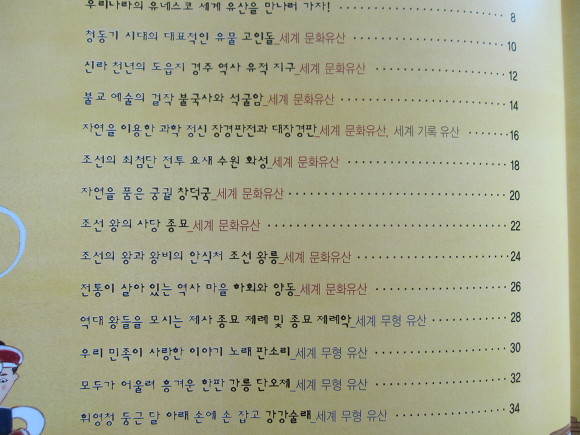 우리나라의 유네스코 세계 유산을 만나러 가자! 8
청동기 시대의 대표적인 유물 고인돌_세계 문화유산 10
신라 천년의 도읍지 경주 역사 유적 지구_세계 문화유산 12
불교 예술의 걸작 불국사와 석굴암_세계 문화유산 14
자연을 이용한 과학 정신 장경판전과 대장경판_세계 문화유산, 세계 기록 유산 16
조선의 최첨단 전투 요새 수원 화성_세계 문화유산 18
자연을 품은 궁궐 창덕궁_세계 문화유산 20
조선 왕의 사당 종묘_세계 문화유산 22
조선의 왕과 왕비의 안식처 조선 왕릉_세계 문화유산 24
전통이 살아 있는 역사 마을 하회와 양동_세계 문화유산 26
역대 왕들을 모시는 제사 종묘 제례 및 종묘 제례악_세계 무형 유산 28
우리 민족이 사랑한 이야기 노래 판소리_세계 무형 유산 30
모두가 어울려 흥겨운 한판 강릉 단오제_세계 무형 유산 32
휘영청 둥근 달 아래 손에 손 잡고 강강술래_세계 무형 유산 34